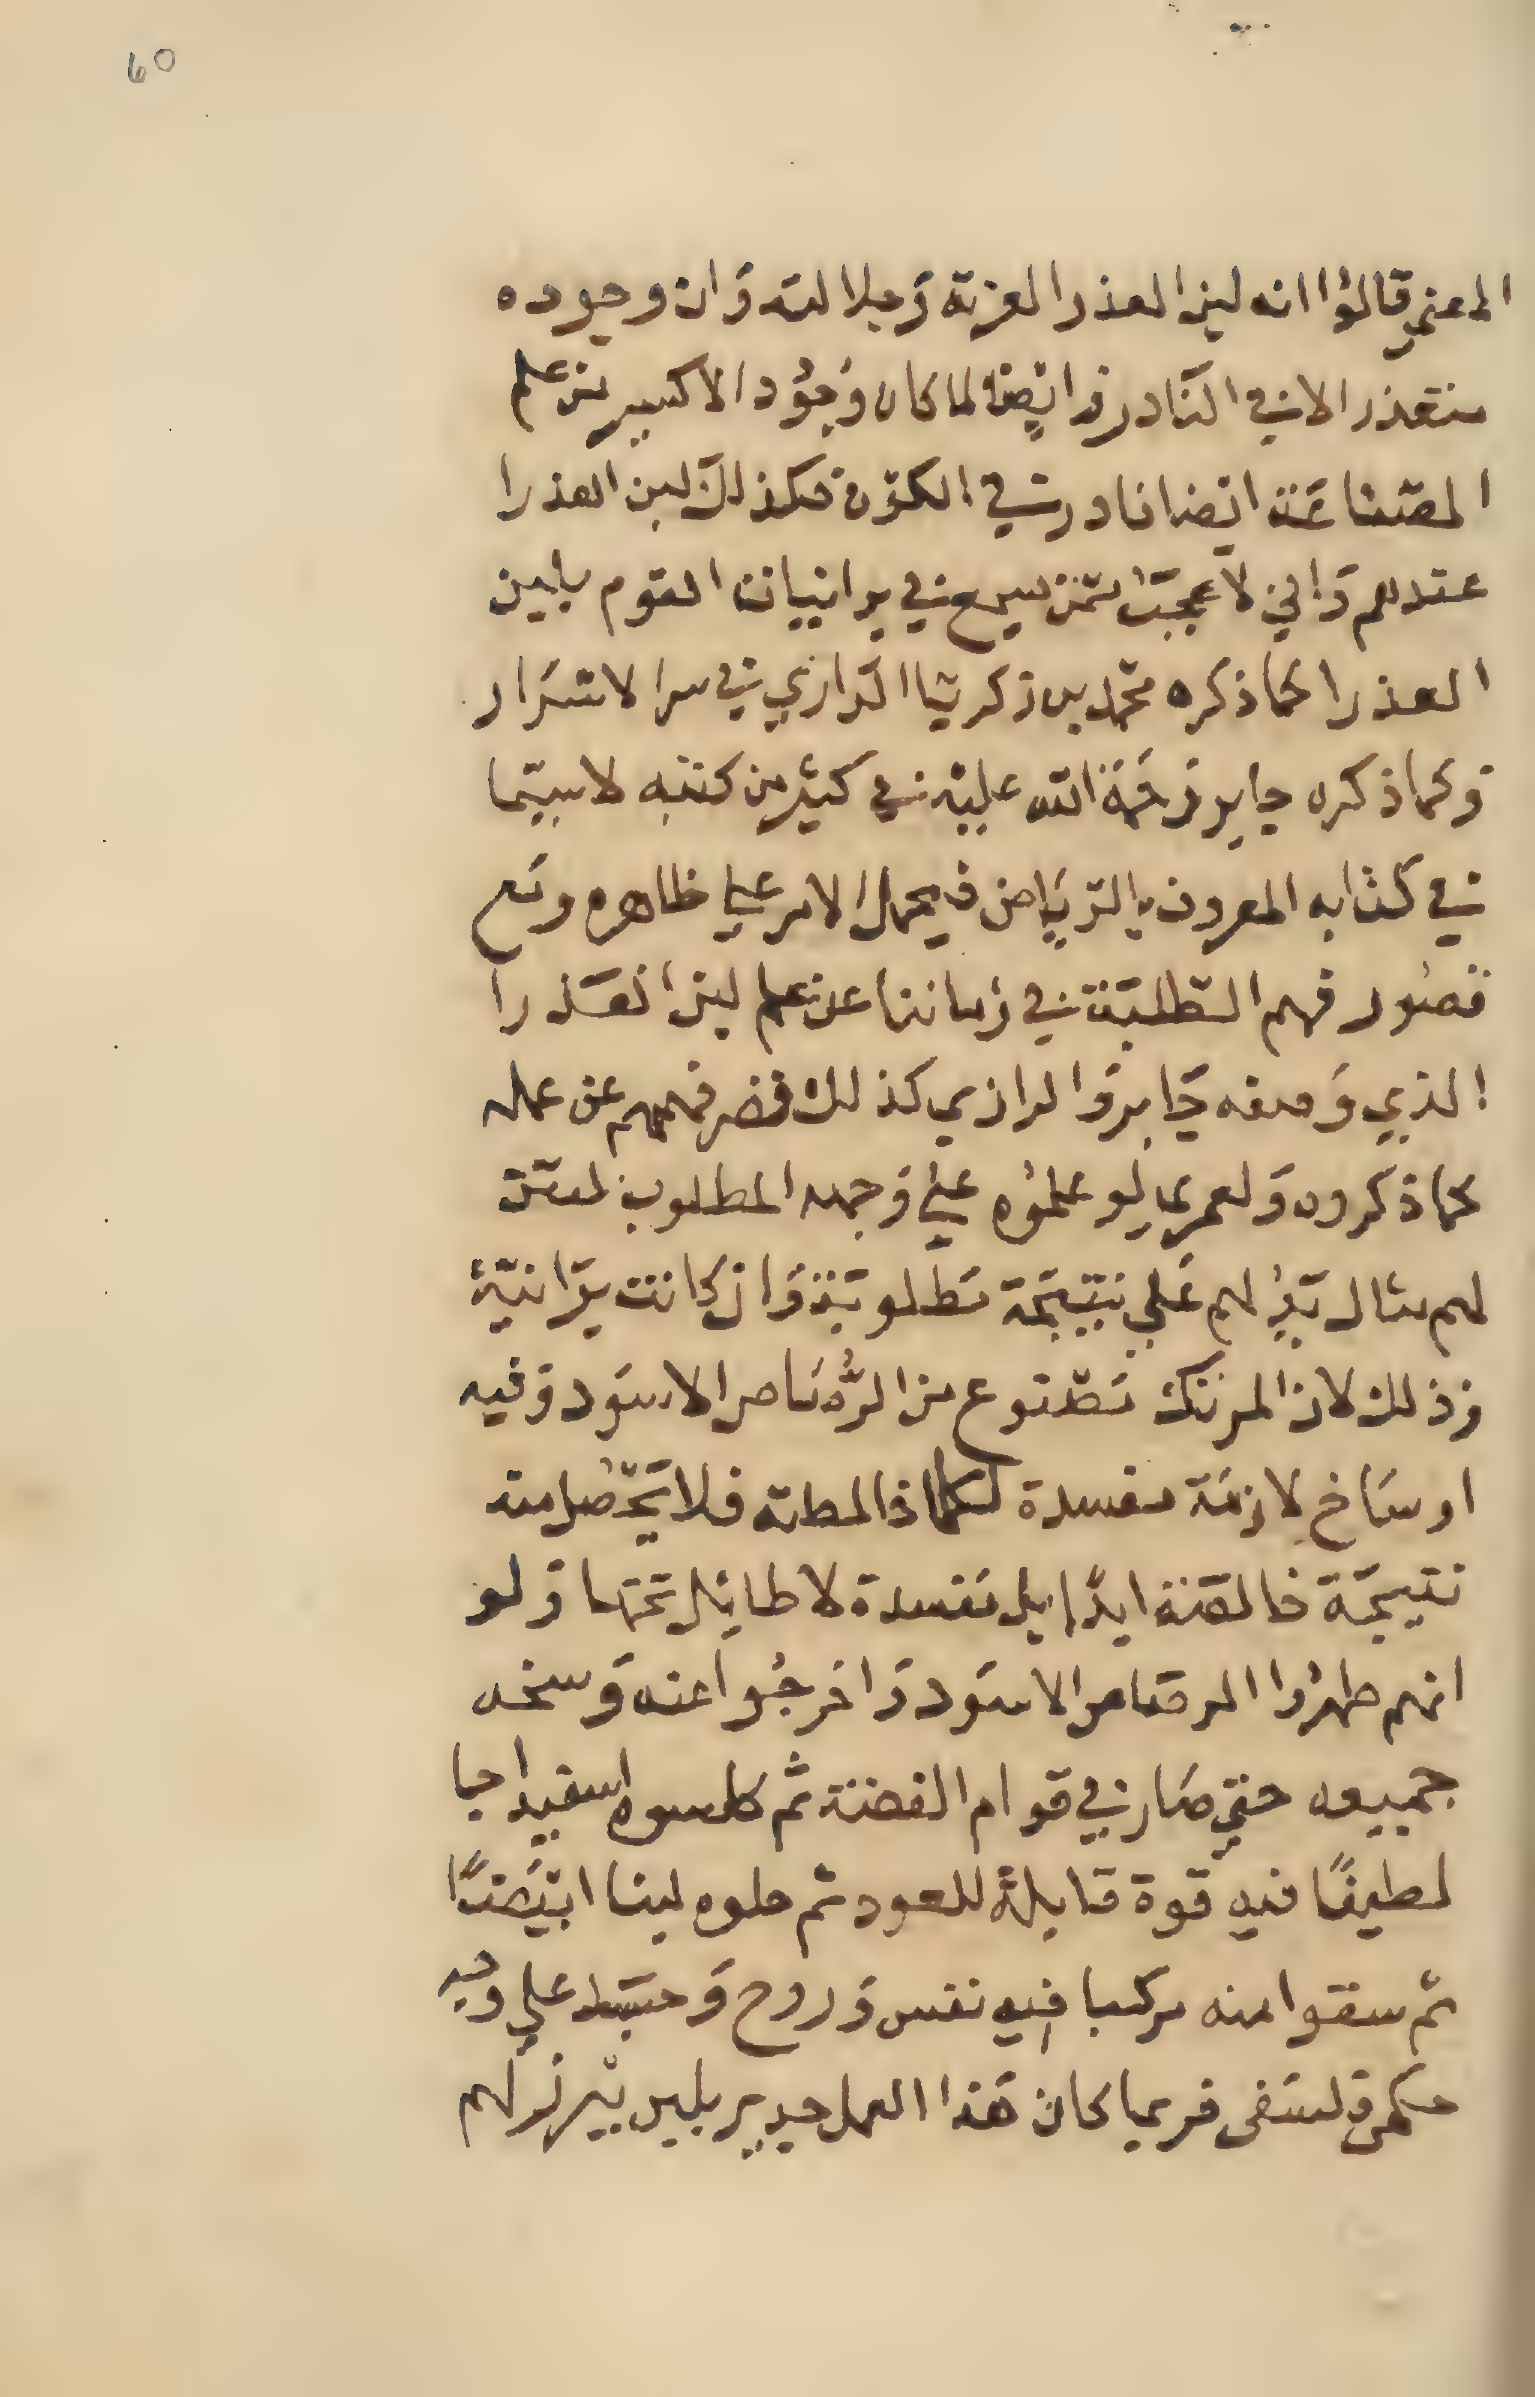 60
المعني قالوا انه لبن العذرا لعزته وَجلالته وَان وجوده
متعذر الا في النادر وَايضا لما كان وَجوُد الاكسير من علم
الصّناعَة ايضا نادرٌ في الكوْن فكذلك لبن العذرا
عندهم وَاني لاعجبُ ممّن يسمع في برانيات القوم بلبن
العذرا كما ذكره محمّد بن زكريّا الرّازي في سر الاسْرَار
وَكما ذكره جابر رَحمَة الله عليْه في كثير من كتبه لاسيّما
في كتابه المعروف بالرّيَاض فيحمل الامر علي ظاهره ومَع
قصُور فهم الطّلبَة في زماننا عن علم لبن العَذرا
الذي وَصفه جَابر وَالرازي كذلك قصر فهمهم عن عمله
كما ذكروه وَلعمري لو علمُوه علي وَجهه المطلوب لصَحّت
لهم مثال تدُلهم عَلي نتيجَة مَطلوبَة وَان كانت برّانيّة
وَذلك لان المرتك مَصْنوع من الرّصَاص الاسوَد وَفيه
اوسَاخ لازمَة مفسدة لكلما خالطته فلا يَحْصُل منه
نتيجَة خالصَة ابدًا بل مَفسدة لا طايل تحتها وَلو
انهم طهرُوا الرصَاص الاسوَد وَاخرجُوا عنه وَسخه
جميعه حتي صَار في قوام الفضة ثم كلسوه اسفيداجا
لطيفًا فيه قوة قابلة للعود ثم حلوه لبنا ابيَضًا
ثم سقوا منه مركبا فيه نفس وَروح وَجسَد علي وجه
حكمي فلسَفي فربما كان هَذا العمل جدير بان يبرز لهم